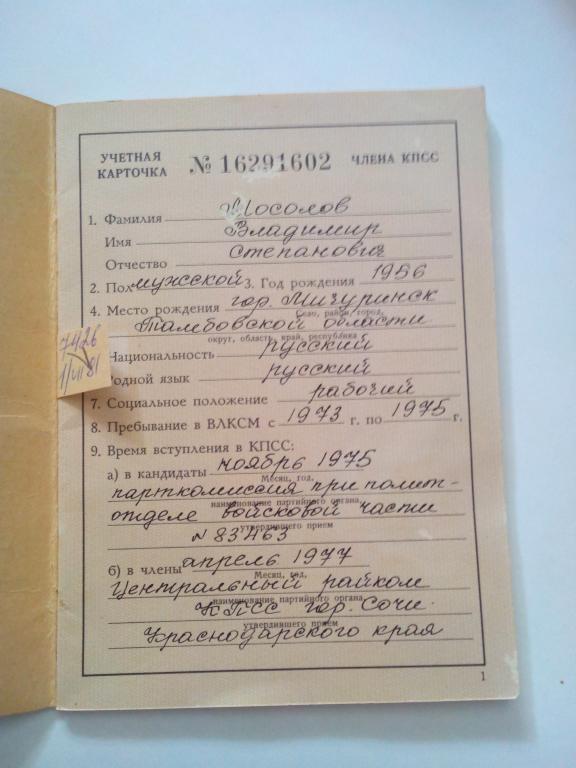 УЧЕТНАЯ КАРТОЧКА № 16291602 ЧЛЕНА КПСС
1. Фамилия Мосолов
Имя Владимир
Отчество Степанович
2. Пол мужской 3. Год рождения 1956
4. Место рождения гор. Мичуринск
Село, район, город,
Тамбовской области
округ, область, край, республика
Национальность русский
Родной язык русский
7. Социальное положение рабочий
8. Пребывание в ВЛКСМ с 1973 г. по 1975 г.
9. Время вступления в КПСС:
а) в кандидаты ноябрь 1975
Месяц, год,
парткомиссия при полит-
наименование партийного органа,
отделе войсковой части
утвердившего прием
N 83463
б) в члены апрель 1977
Месяц, год,
Центральный райком
наименование партийного органа,
КПСС гор. Сочи
утвердившего прием
Краснодарского края
1
7426